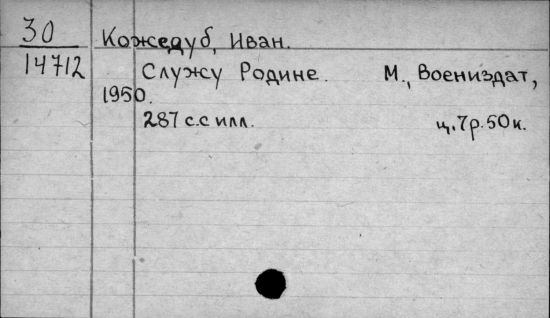 30
14712
Кожедуб, Иван.
Служу Родине. М., Воениздат,
1950.
287 с. с илл. ц. 7 р. 50 к.